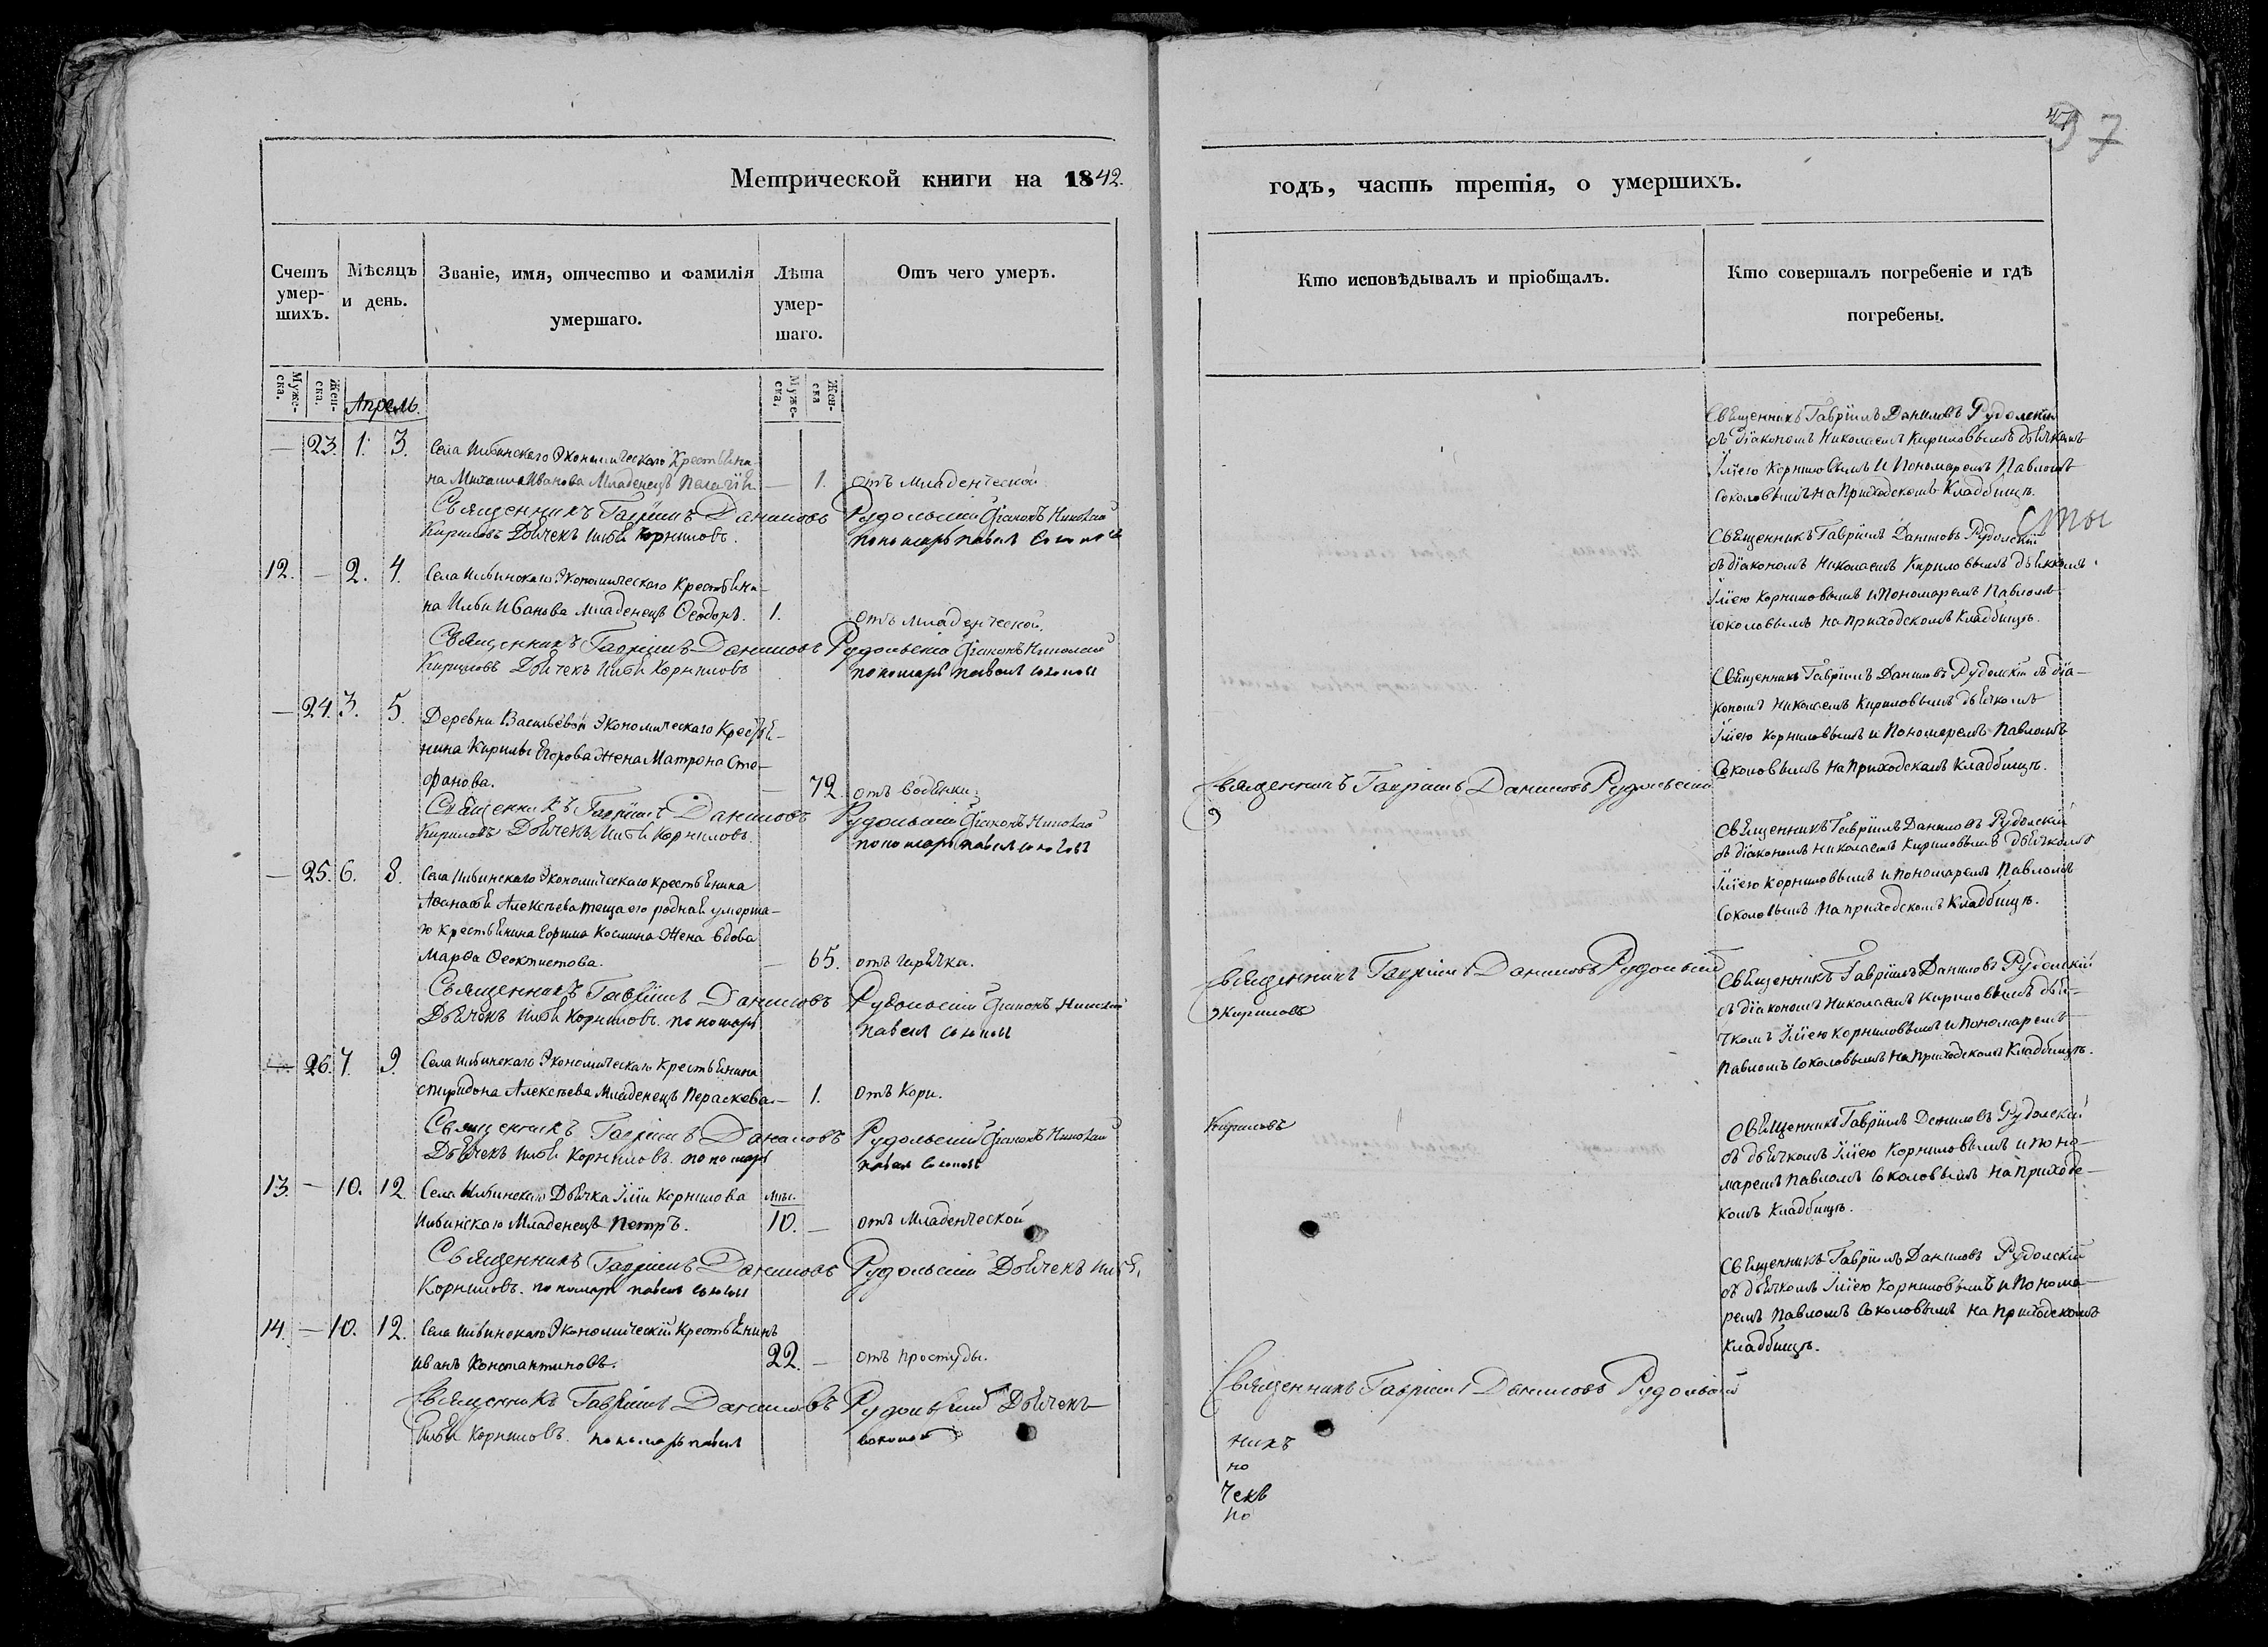 Метрической книги на 1842.
Счетъ умер-шихъ.
Мѣсяцъ и день.
Званіе, имя, отчество и фамилія умершаго.
Лѣта умер-шаго.
Отъ чего умеръ.
Муже-ска.
Жен-ска.
Муже-ска.
Жен-ска
Апрель.
— 23. 1. 3. Села Ильинскаго Экономическаго Крестьяни-
на Михаила Иванова Младенецъ Пелагія — 1. отъ младенческой.
Священникъ Гавріилъ Даниловъ Рудольскій Діаконъ Николай
Кириловъ Дьячекъ Илья Корниловъ. пономарь павелъ соколовъ
12. — 2. 4. Села Ильинскаго Экономическаго Крестьяни-
на Ильи Иванова младенецъ Ѳеодоръ. 1. отъ младенческой.
Священникъ Гавріилъ Даниловъ Рудольскій Діаконъ Николай
Кириловъ Дьячекъ Илья Корниловъ пономарь павелъ соколовъ
— 24. 3. 5. Деревни Васильевой Экономическаго Крестья-
нина Кирилы Егорова Жена Матрона Сте-
фанова. — 72. отъ водянки.
Священникъ Гавріилъ Даниловъ Рудольскій Діаконъ Николай
Кириловъ Дьячекъ Илья Корниловъ. пономарь павелъ соколовъ
— 25. 6. 8. Села Ильинскаго Экономическаго крестьянина
Аѳанасья Алексѣева теща его родная умерша-
го крестьянина Ефима Космина Жена вдова
Марѳа Ѳеоктистова. — 65. отъ горячки.
Священникъ Гавріилъ Даниловъ Рудольскій Діаконъ Николай
Дьячекъ Илья Корниловъ. пономарь павелъ соколовъ
26. 7. 9. Села Ильинскаго Экономическаго Крестьянина
Спиридона Алексѣева Младенецъ Пераскева — 1. отъ Кори.
Священникъ Гавріилъ Даниловъ Рудольскій Діаконъ Николай
Дьячекъ Илья Корниловъ. пономарь павелъ соколовъ
13. — 10. 12. Села Ильинскаго Дьячка Іліи Корнилова
Ильинскаго Младенецъ Петръ. 10. — отъ Младенческой
Священникъ Гавріилъ Даниловъ Рудольскій Дьячекъ Илья
Корниловъ. пономарь павелъ соколовъ
14. — 10. 12. Села Ильинскаго Экономическій Крестьянинъ
Иванъ Константиновъ. 22. — отъ простуды.
Священникъ Гавріилъ Даниловъ Рудольскій Дьячекъ
Илья Корниловъ. пономарь павелъ соколовъ
97
годъ, часть третія, о умершихъ.
Кто исповѣдывалъ и пріобщалъ.
Кто совершалъ погребеніе и гдѣ погребены.
Священникъ Гавріилъ Даниловъ Рудолскій
съ діакономъ Николаемъ Кириловымъ дьячкомъ
Іліею Корниловымъ и Пономаремъ Павломъ
Соколовымъ на Приходскомъ Кладбищѣ.
Священникъ Гавріилъ Даниловъ Рудолскій
съ діакономъ Николаемъ Кириловымъ дьячкомъ
Іліею Корниловымъ и Пономаремъ Павломъ
Соколовымъ на приходскомъ Кладбищѣ.
Священникъ Гавріилъ Даниловъ Рудолскій съ діа-
кономъ Николаемъ Кириловымъ дьячкомъ
Іліею Корниловымъ и Пономаремъ Павломъ
Соколовымъ на Приходскомъ Кладбищѣ.
Священникъ Гавріилъ Даниловъ Рудольскій
Священникъ Гавріилъ Даниловъ Рудолскій
съ діакономъ Николаемъ Кириловымъ дьячкомъ
Іліею Корниловымъ и пономаремъ Павломъ
Соколовымъ на приходскомъ Кладбищѣ.
Священникъ Гавріилъ Даниловъ Рудольскій
Кириловъ
Священникъ Гавріилъ Даниловъ Рудолскій
съ діакономъ Николаемъ Кириловымъ дья-
чкомъ Іліею Корниловымъ и Пономаремъ
Павломъ Соколовымъ на Приходскомъ Кладбищѣ.
Кириловъ
Священникъ Гавріилъ Даниловъ Рудолскій
съ дьячкомъ Іліею Корниловымъ и поно-
маремъ Павломъ Соколовымъ на Приходс-
комъ Кладбищѣ.
Священникъ Гавріилъ Даниловъ Рудолскій
съ дьячкомъ Іліею Корниловымъ и Понома-
ремъ Павломъ Соколовымъ на Приходскомъ
Кладбищѣ.
Священникъ Гавріилъ Даниловъ Рудольскій
никъ
но
чекъ
но